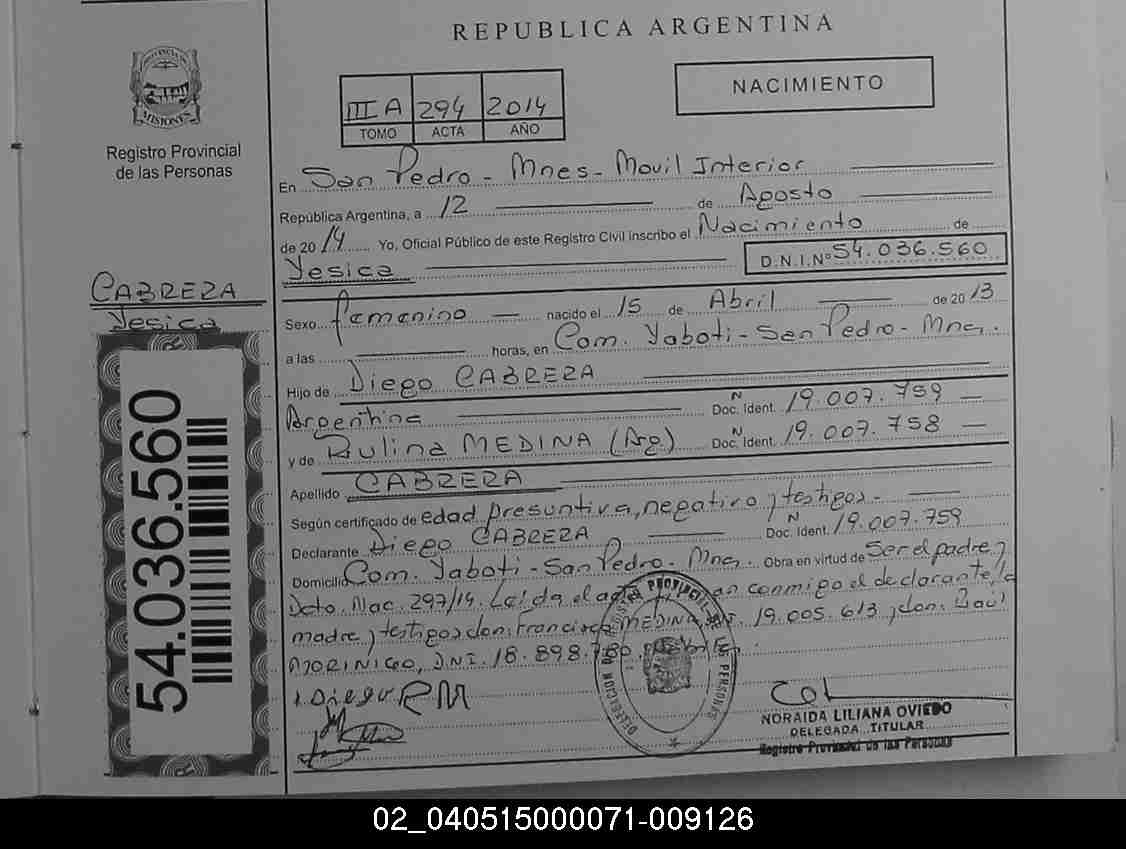 REPUBLICA ARGENTINA
PROVINCIA DE
MISIONES
Registro Provincial
de las Personas
III A 294 2014
TOMO ACTA AÑO
NACIMIENTO
En San Pedro - Mnes - Movil Interior
República Argentina, a 12 de Agosto
de 2014 Yo, Oficial Público de este Registro Civil inscribo el Nacimiento de
Yesica D.N.I.Nº 54.036.560
CABRERA
Yesica
54.036.560
Sexo femenino nacido el 15 de Abril de 2013
a las horas, en Com. Yaboti - San Pedro - Mnes.
Hijo de Diego CABRERA
Argentina Doc. Ident. N 19.007.759
y de Paulina MEDINA (Arg) Doc. Ident. N 19.007.758
Apellido CABRERA
Según certificado de edad presuntiva, negativo y testigos -
Declarante Diego CABRERA Doc. Ident. N 19.007.759
Domicilio Com. Yaboti - San Pedro - Mnes. Obra en virtud de Ser el padre y
Dcto. Nac. 297/14. Leída el acta conmigo el declarante, la
madre y testigos don: Francisco MEDINA 19.005.613 y don: Raúl
MORINIGO, DNI. 18.898.780
Diego RM
DELEGACION REGISTRO PROVINCIAL DE LAS PERSONAS
NORAIDA LILIANA OVIEDO
DELEGADA TITULAR
Registro Provincial de las Personas
02_040515000071-009126